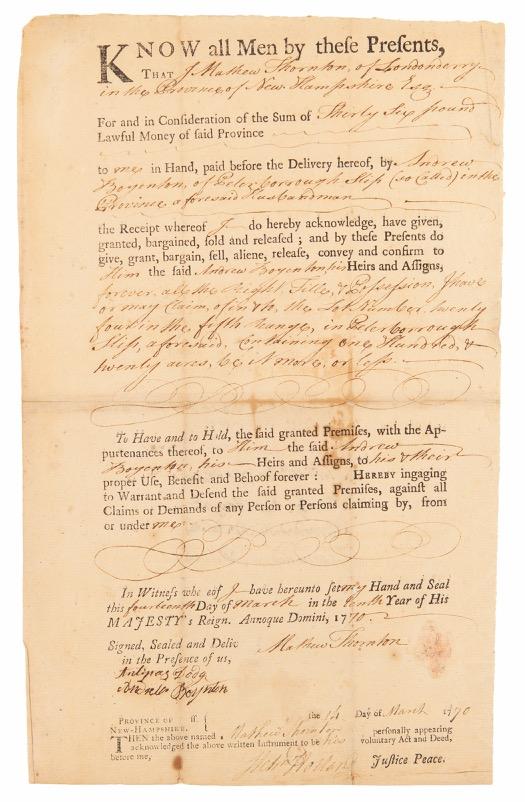 KNOW all Men by these Presents,
THAT I Mathew Thornton, of Londonderry
in the Province of New Hampshire Esq
For and in Consideration of the Sum of Thirty Six pound
Lawful Money of said Province
to me in Hand, paid before the Delivery hereof, by Andrew
Boyenton, of Peterborrough Slip (so Called) in the
Province aforesaid Husbandman
the Receipt whereof I do hereby acknowledge, have given,
granted, bargained, sold and released; and by these Presents do
give, grant, bargain, sell, aliene, release, convey and confirm to
Him the said Andrew Boyenton his Heirs and Assigns,
forever, all the Right, Title, & Possession, I have
or may Claim, of in & to, the Lot Number, twenty
four in the fifth Range, in Peterborrough
Slip, aforesaid, Containing one Hundred, &
twenty acres, be it more, or less.
To Have and to Hold, the said granted Premises, with the Ap-
purtenances thereof, to Him the said Andrew
Boyenton, his Heirs and Assigns, to his & their
proper Use, Benefit and Behoof forever: HEREBY ingaging
to Warrant and Defend the said granted Premises, against all
Claims or Demands of any Person or Persons claiming by, from
or under me.
In Witness whe eof I have hereunto set my Hand and Seal
this fourteenth Day of March in the tenth Year of His
MAJESTY's Reign. Annoque Domini, 1770.
Signed, Sealed and Deliv
in the Presence of us,
Mathew Thornton
Antipas Dodg
Boynton
PROVINCE of ss.
NEW-HAMPSHIRE. the 14 Day of March 1770
THEN the above named Mathew Thornton personally appearing
acknowledged the above written Instrument to be his voluntary Act and Deed,
before me, Justice Peace.